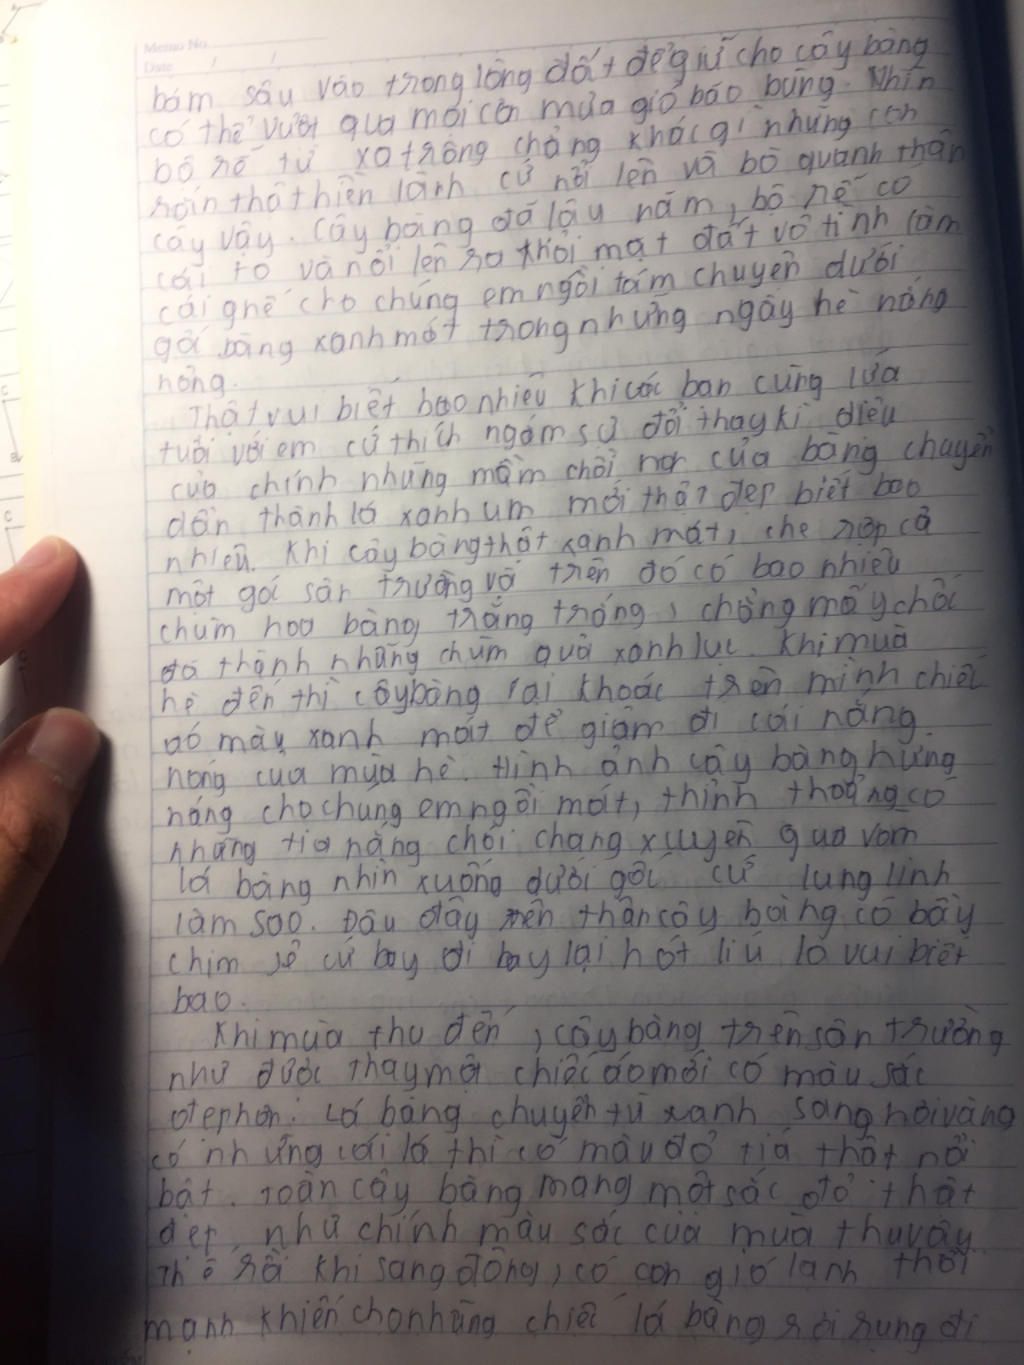 Memo No.
Date / /
bám sâu vào trong lòng đất để giữ cho cây bàng
có thể vượt qua mỗi cơn mưa gió bão bùng. Nhìn
bộ rố từ xa trông chẳng khác gì những con
rắn thật hiền lành cứ nổi lên và bò quanh thân
cây vậy. Cây bàng đã lâu năm, bộ rễ có
cái to và nổi lên ra khỏi mạt đất vô tình làm
cái ghế cho chúng em ngồi tám chuyện dưới
gối bàng xanh mát trong những ngày hè nóng
nỏng.
Thật vui biết bao nhiêu khi các bạn cùng lứa
tuổi với em cứ thích ngắm sự đổi thay kì diệu
của chính những mầm chồi non của bàng chuyển
dần thành lá xanh um mới thật đẹp biết bao
nhiêu. Khi cây bàng thật xanh mát, che rợp cả
một gói sân trường và trên đó có bao nhiêu
chùm hoa bàng trắng tráng, chẳng mấy chốc
đã thành những chùm quả xanh lục. Khi muà
hè đến thì cây bàng lại khoác trên mình chiếc
áo màu xanh mát để giảm đi cái nắng
nóng của mùa hè. Hình ảnh cây bàng hứng
nắng cho chúng em ngồi mát, thỉnh thoảng có
những tia nắng chói chang xuyên qua vòm
lá bàng nhìn xuống dưới gốc cứ lung linh
làm sao. Đâu đây trên thân cây bàng có bầy
chim sẻ cứ bay đi bay lại hót líu lo vui biết
bao.
Khi mùa thu đến, cây bàng trên sân trường
như được thay một chiếc áo mới có màu sắc
đẹp hơn. Lá bàng chuyển từ xanh sang hơi vàng
có những cái lá thì có màu đỏ tiá thật nổi
bật. Toàn cây bàng mang một sắc đỏ thật
đẹp như chính màu sắc của mùa thu vậy.
Thế rồi khi sang đông, có cơn gió lạnh thổi
mạnh khiến cho những chiếc lá bàng rơi rụng đi